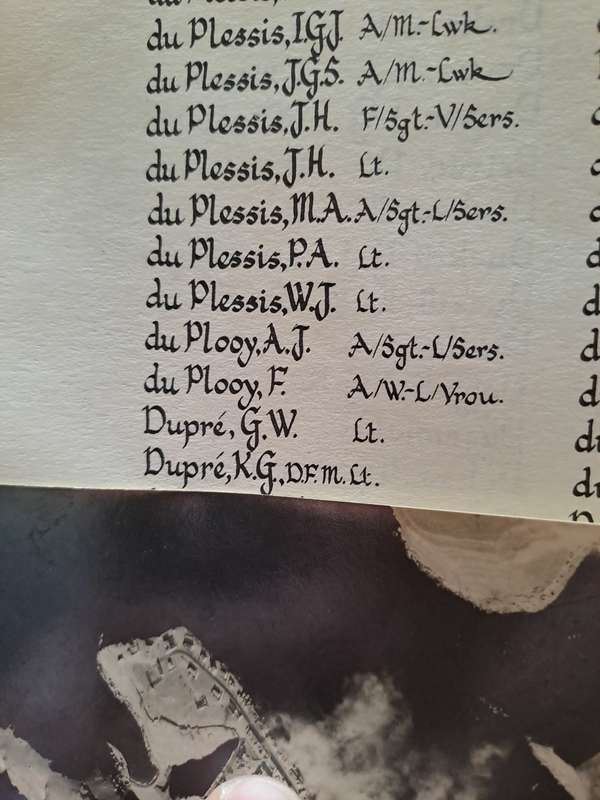 du Plessis, I.G.J. A/M.-Lwk.
du Plessis, J.G.S. A/M.-Lwk
du Plessis, J.H. F/Sgt.-V/Sers.
du Plessis, J.H. Lt.
du Plessis, M.A. A/Sgt.-L/Sers.
du Plessis, P.A. Lt.
du Plessis, W.J. Lt.
du Plooy, A.J. A/Sgt.-L/Sers.
du Plooy, F. A/W.-L/Vrou.
Dupré, G.W. Lt.
Dupré, K.G., D.F.M. Lt.